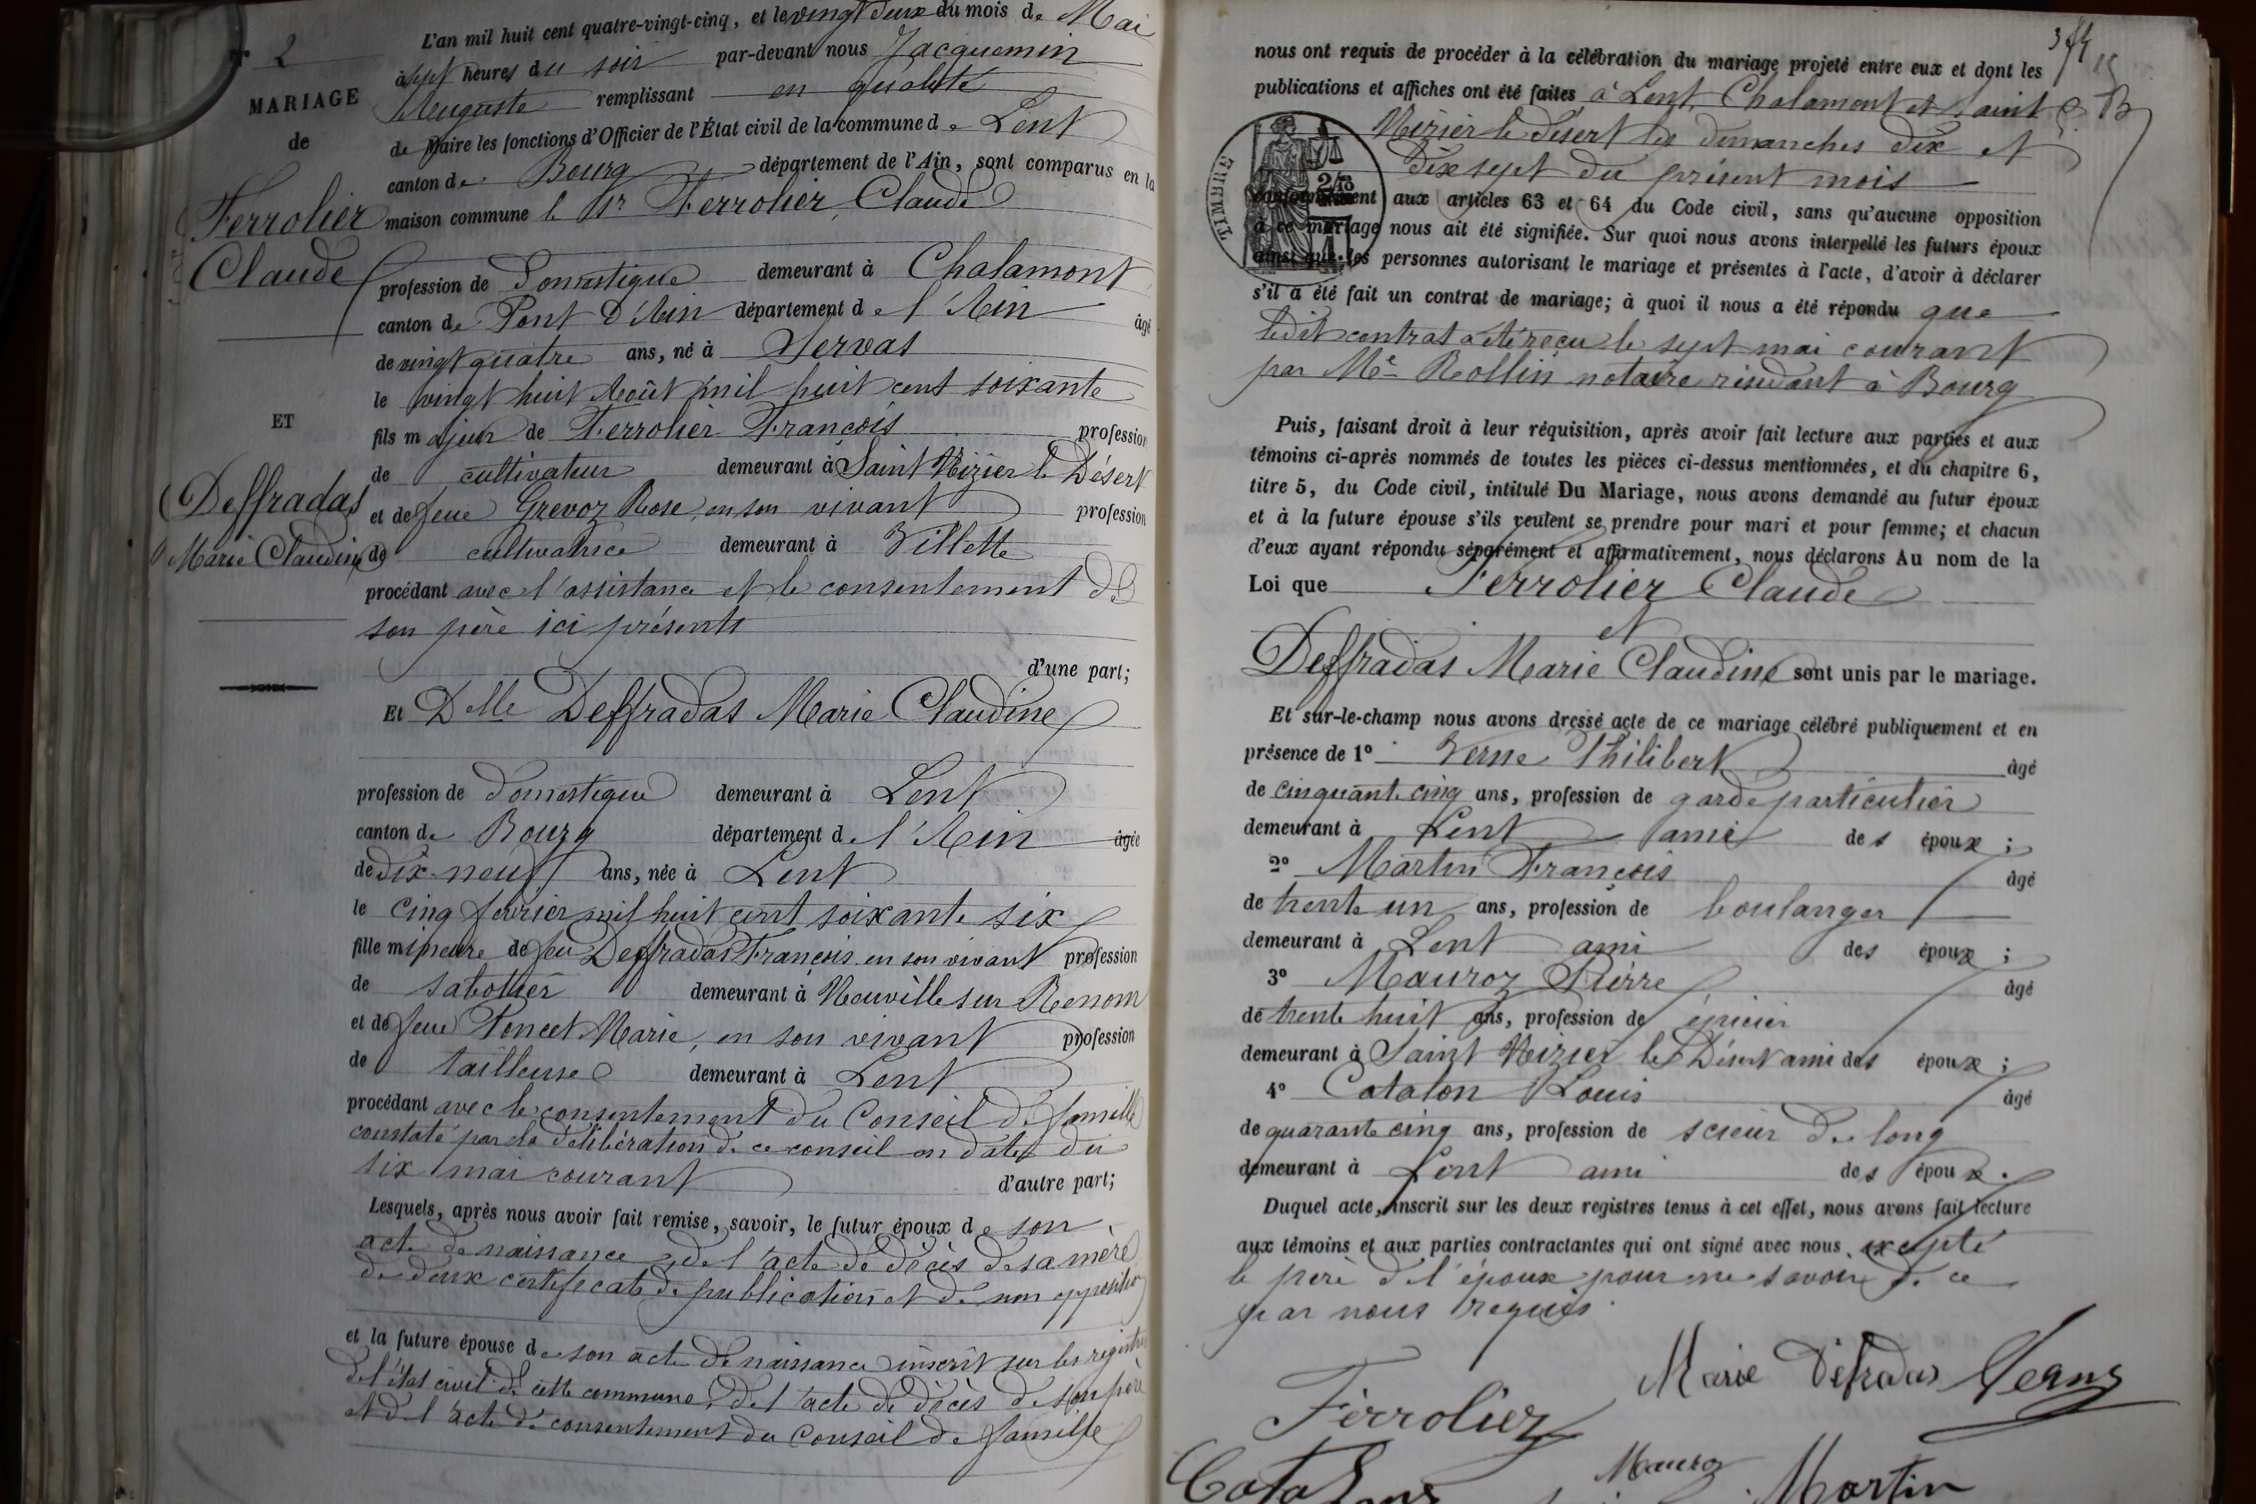 N° 2
MARIAGE
de
Ferrolier
Claude
ET
Deffradas
Marie Claudine
L'an mil huit cent quatre-vingt-cinq, et le vingt deux du mois de Mai
à sept heures du soir par-devant nous Jacquemin
Auguste remplissant en qualité
de Maire les fonctions d'Officier de l'État civil de la commune de Lent
canton de Bourg département de l'Ain, sont comparus en la
maison commune le Sr Ferrolier Claude
profession de Domestique demeurant à Chalamont
canton de Pont d'Ain département de l'Ain âgé
de vingt quatre ans, né à Servas
le vingt huit Août mil huit cent soixante
fils majeur de Ferrolier François profession
de cultivateur demeurant à Saint Nizier le Désert
et de feue Grevoz Rose, en son vivant profession
de cultivatrice demeurant à Villette
procédant avec l'assistance et le consentement de
son père ici présents
d'une part;
Et Delle Deffradas Marie Claudine
profession de domestique demeurant à Lent
canton de Bourg département de l'Ain âgée
de dix-neuf ans, née à Lent
le cinq février mil huit cent soixante six
fille mineure de feu Deffradas François en son vivant profession
de sabotier demeurant à Neuville sur Renom
et de feue Poncet Marie, en son vivant profession
de tailleuse demeurant à Lent
procédant avec le consentement du Conseil de famille
constaté par la délibération de ce conseil en date du
six mai courant d'autre part;
Lesquels, après nous avoir fait remise, savoir, le futur époux de son
acte de naissance, de l'acte de décès de sa mère
de deux certificats de publication et de non opposition
et la future épouse de son acte de naissance inscrit sur les registres
de l'état civil de cette commune, de l'acte de décès de son père
et de l'acte de consentement du Conseil de famille
nous ont requis de procéder à la célébration du mariage projeté entre eux et dont les
publications et affiches ont été faites à Lent, Chalamont et Saint
Nizier le Désert les dimanches dix et
dix sept du présent mois
TIMBRE
conformément aux articles 63 et 64 du Code civil, sans qu'aucune opposition
à ce mariage nous ait été signifiée. Sur quoi nous avons interpellé les futurs époux
ainsi que les personnes autorisant le mariage et présentes à l'acte, d'avoir à déclarer
s'il a été fait un contrat de mariage; à quoi il nous a été répondu que
ledit contrat a été reçu le sept mai courant
par Me Rollin notaire résidant à Bourg
Puis, faisant droit à leur réquisition, après avoir fait lecture aux parties et aux
témoins ci-après nommés de toutes les pièces ci-dessus mentionnées, et du chapitre 6,
titre 5, du Code civil, intitulé Du Mariage, nous avons demandé au futur époux
et à la future épouse s'ils veulent se prendre pour mari et pour femme; et chacun
d'eux ayant répondu séparément et affirmativement, nous déclarons Au nom de la
Loi que Ferrolier Claude
et
Deffradas Marie Claudine sont unis par le mariage.
Et sur-le-champ nous avons dressé acte de ce mariage célébré publiquement et en
présence de 1° Verne Philibert âgé
de cinquante cinq ans, profession de garde particulier
demeurant à Lent ami des époux;
2° Martin François âgé
de trente un ans, profession de boulanger
demeurant à Lent ami des époux;
3° Mauroz Pierre âgé
de trente huit ans, profession de épicier
demeurant à Saint Nizier le Désert ami des époux;
4° Catalon Louis âgé
de quarante cinq ans, profession de scieur de long
demeurant à Lent ami des époux.
Duquel acte, inscrit sur les deux registres tenus à cet effet, nous avons fait lecture
aux témoins et aux parties contractantes qui ont signé avec nous, excepté
le père de l'époux pour ne savoir de ce
par nous requis.
Marie Défradas Verne
Ferrolier
Mauroz
Martin